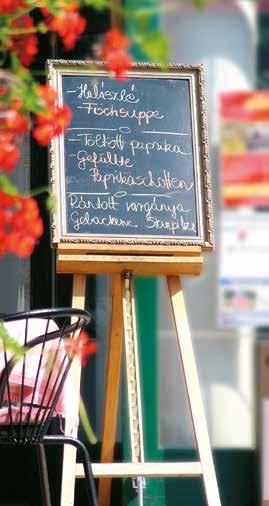 - Halászlé
- Fischsuppe
- Töltött paprika
Gefüllte
Paprikaschotten
Rántott vargánya
Gebackene Steinpilze